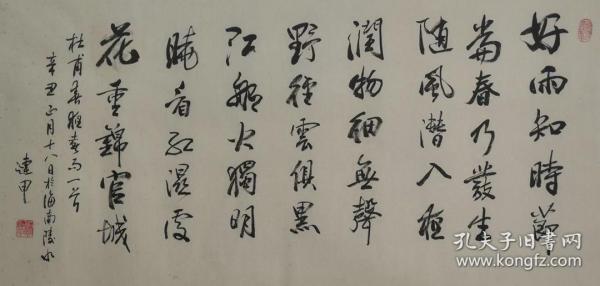 好雨知時節
當春乃發生
随風潛入夜
潤物細無聲
野徑雲俱黑
江船火獨明
曉看紅濕處
花重錦官城
杜甫春夜喜雨一首
辛丑正月十八日於海南陵水
達甲
孔夫子旧书网
www.kongfz.com